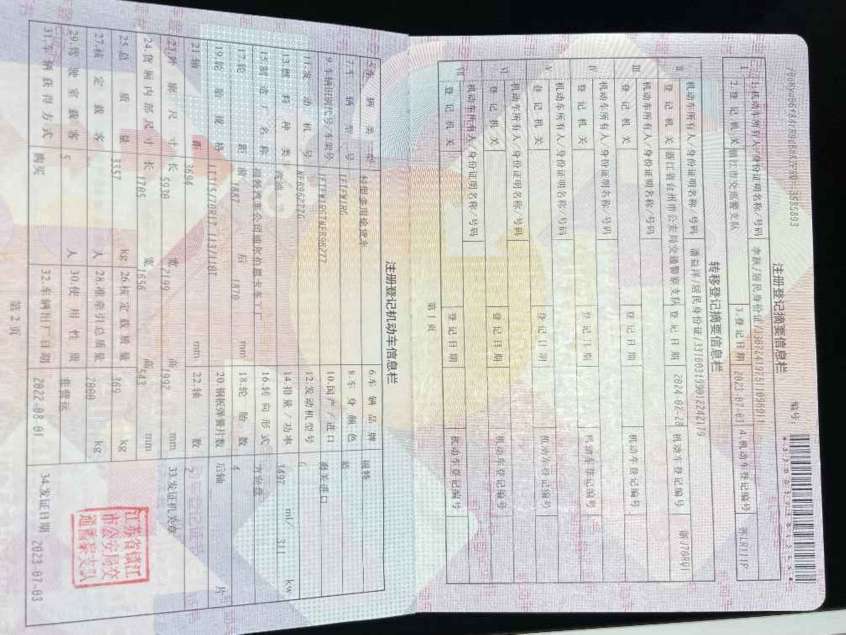 注册登记摘要信息栏
编号:
1.机动车所有人/身份证明名称/号码
居民身份证
2.登记机关
镇江市交巡警支队
3.登记日期
2023-07-03
4.机动车登记编号
转移登记摘要信息栏
机动车所有人/身份证明名称/号码
居民身份证
登记机关
浙江省台州市公安局交通警察支队
登记日期
2024-02-28
机动车登记编号
III
机动车所有人/身份证明名称/号码
登记机关
登记日期
机动车登记编号
IV
机动车所有人/身份证明名称/号码
登记机关
登记日期
机动车登记编号
V
机动车所有人/身份证明名称/号码
登记机关
登记日期
机动车登记编号
VI
机动车所有人/身份证明名称/号码
登记机关
登记日期
机动车登记编号
VII
机动车所有人/身份证明名称/号码
登记机关
登记日期
机动车登记编号
第1页
注册登记机动车信息栏
5.车辆类型
轻型多用途货车
6.车辆品牌
福特
7.车辆型号
8.车身颜色
9.车辆识别代号/车架号
10.国产/进口
进口
11.发动机号
12.发动机型号
13.燃料种类
汽油
14.排量/功率
3497 ml/ 311 kw
15.制造厂名称
16.转向形式
方向盘
17.轮距
前 1887 后 1870 mm
18.轮胎数
4
19.轮胎规格
20.钢板弹簧片数
后轴 片
21.轴距
3694 mm
22.轴数
2
23.外廓尺寸
长 5930 宽 2199 高 1992 mm
33.发证机关章
24.货厢内部尺寸
长 1705 宽 1656 高 543 mm
25.总质量
3357 kg
26.核定载质量
369 kg
27.核定载客
人
28.准牵引总质量
2000 kg
29.驾驶室载客
5 人
30.使用性质
非营运
31.车辆获得方式
购买
32.车辆出厂日期
2022-08-01
34.发证日期
2023-07-03
江苏省镇江
市公安局交
通警察支队
第2页